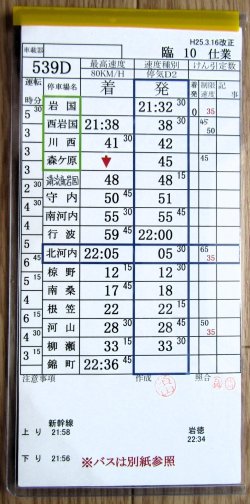 H25.3.16改正
車載器
臨 10 仕業
539D 最高速度 速度種別 けん引定数
80KM/H 停気D2
運転時分 停車場名 着 発 着発 制限速度 記事
岩国 21:32 30 0 35
5 30 西岩国 21:38 38 30 45 50
3 川西 41 30 42 30
3 森ケ原 45 45
3 48 48 15
3 守内 50 45 51
4 30 南河内 55 30 55 45
4 行波 59 45 22:00
5 北河内 22:05 05 30 65 35
6 45 椋野 12 15 12 30
5 南桑 17 15 18
4 根笠 22 15 22 45
6 河山 28 30 28 45 50 35
4 30 柳瀬 33 15 33 30
3 錦町 22:36 45
注意事項 作成 照合
新幹線 岩徳
上り 21:58 22:34
下り 21:56
※バスは別紙参照